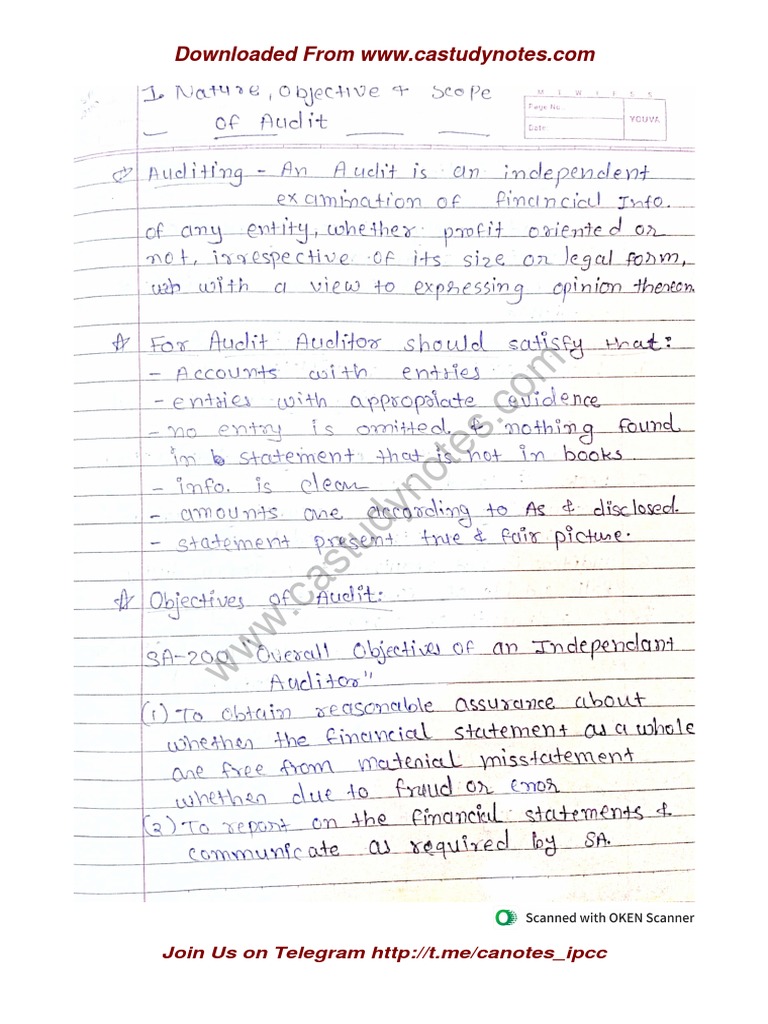 Downloaded From www.castudynotes.com
1. Nature, Objective & Scope
of Audit
M T W T F S S
Page No.:
Date:
YOUVA
Auditing - An Audit is an independent
examination of financial Info.
of any entity, whether profit oriented or
not, irrespective of its size or legal form,
with a view to expressing opinion thereon.
☆ For Audit Auditor should satisfy that:
- Accounts with entries
- entries with appropriate evidence
- no entry is omitted & nothing found
in statement that is not in books.
- info. is clear
- amounts are according to AS & disclosed.
- statement present true & fair picture.
☆ Objectives of Audit:
SA-200 "Overall Objectives of an Independant
Auditor"
(1) To obtain reasonable assurance about
whether the financial statement as a whole
are free from material misstatement
whether due to fraud or error
(2) To report on the financial statements &
communicate as required by SA.
www.castudynotes.com
Scanned with OKEN Scanner
Join Us on Telegram http://t.me/canotes_ipcc